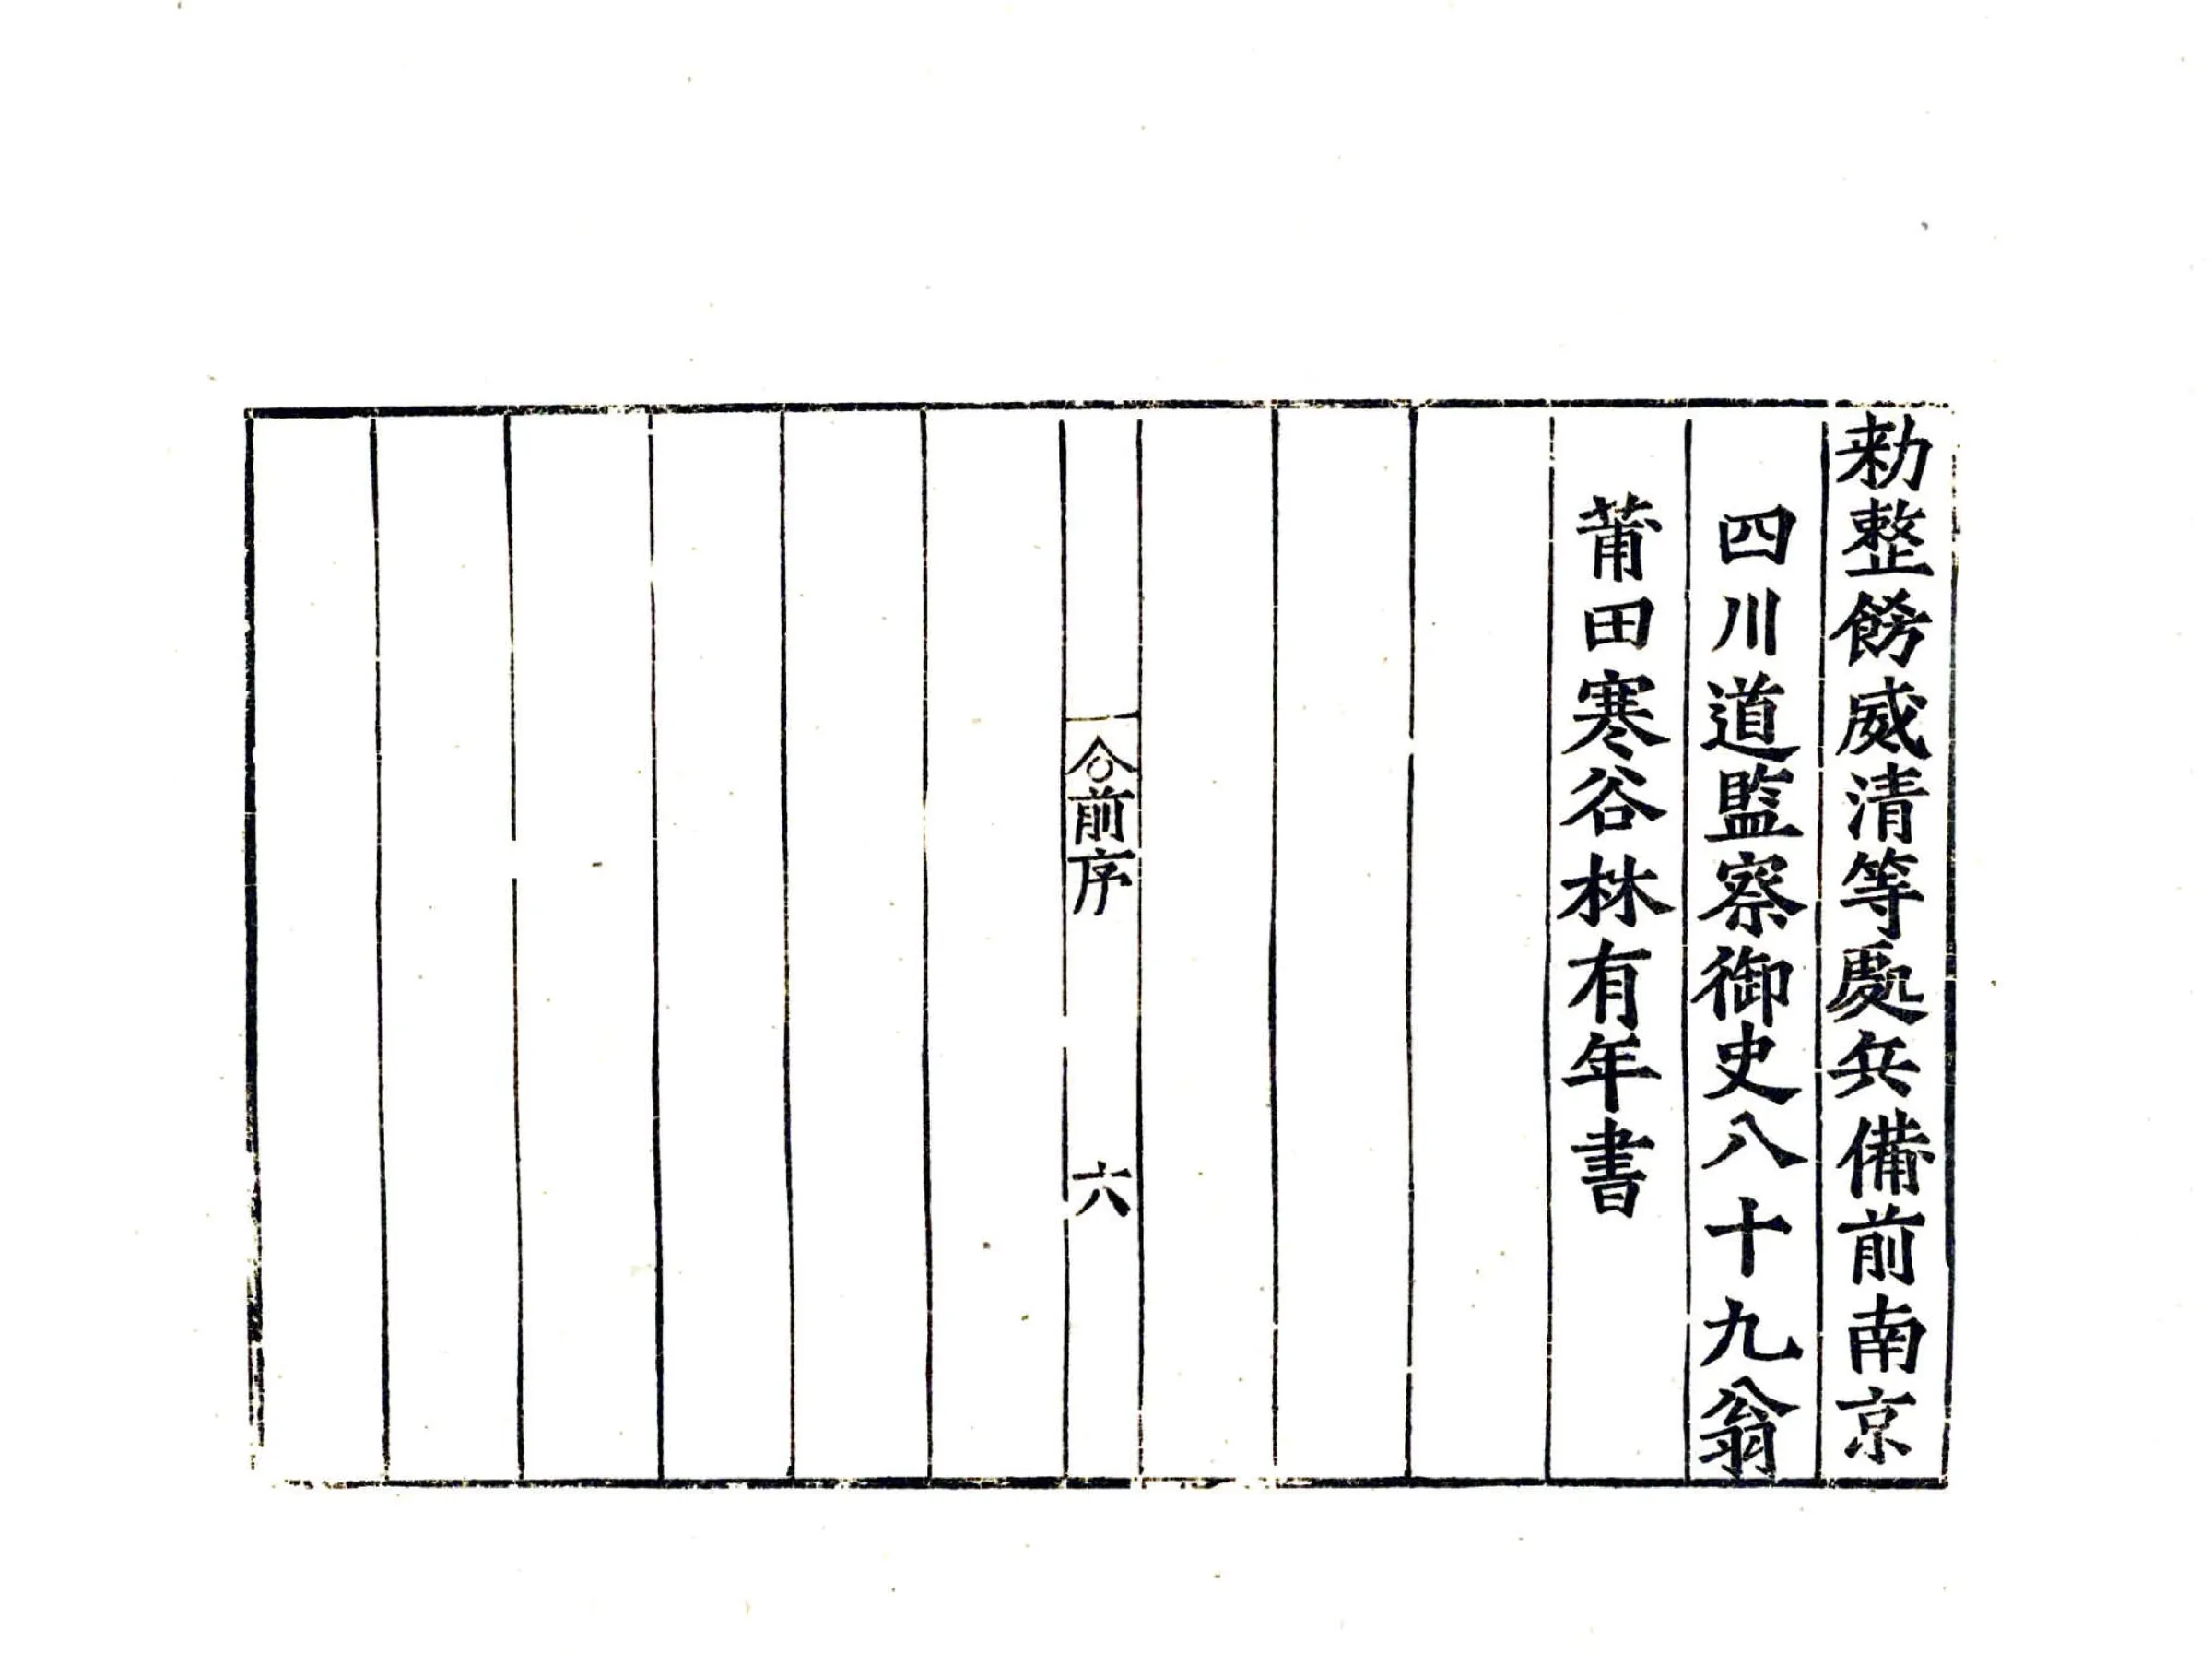 勑整餝威清等處兵備前南京
四川道監察御史八十九翁
莆田寒谷林有年書
前序
六